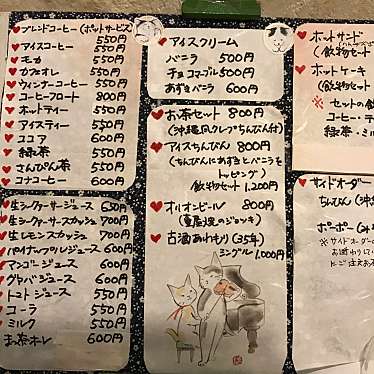 ブレンドコーヒー(ポットサービス)
550円
アイスコーヒー 550円
モカ 550円
カフェオレ 550円
ウィンナーコーヒー 600円
コーヒーフロート 800円
ホットティー 550円
アイスティー 550円
ココア 600円
緑茶 550円
さんぴん茶 550円
コナコーヒー 600円
生シークヮーサージュース 650円
生シークヮーサースカッシュ 700円
生レモンスカッシュ 700円
パイナップルジュース 600円
マンゴージュース 600円
グァバジュース 600円
トマトジュース 550円
コーラ 550円
ミルク 550円
お茶オーレ 600円
アイスクリーム
バニラ 500円
チョコマーブル 500円
あずきバニラ 600円
お茶セット 800円
(沖縄風クレープちんびん付)
アイスちんびん 800円
(ちんびんにあずきとバニラをトッピング)
飲物セット 1,200円
オリオンビール 800円
古酒あわもり(35年)
シングル 1,000円
ホットサンド
(飲物セット
ホットケーキ
(飲物セット
※セットの飲
コーヒー・テ
緑茶・ミル
サイドオーダー
ちんびん(沖
ポーポー
※サイドオーダー